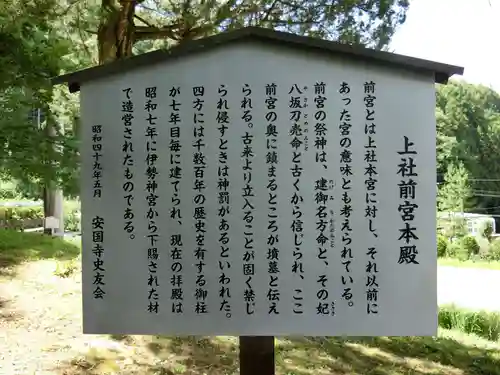 上社前宮本殿
前宮とは上社本宮に対し、それ以前に
あった宮の意味とも考えられている。
前宮の祭神は、建御名方命と、その妃
八坂刀売命と古くから信じられ、ここ
前宮の奥に鎮まるところが御墳と伝え
られる。古来より立入ることが固く禁じ
られ侵すときは神罰があるといわれた。
四方には千数百年の歴史を有する御柱
が七年目毎に建てられ、現在の拝殿は
昭和七年に伊勢神宮から下賜された材
で造営されたものである。
昭和四十九年五月　安国寺史友会